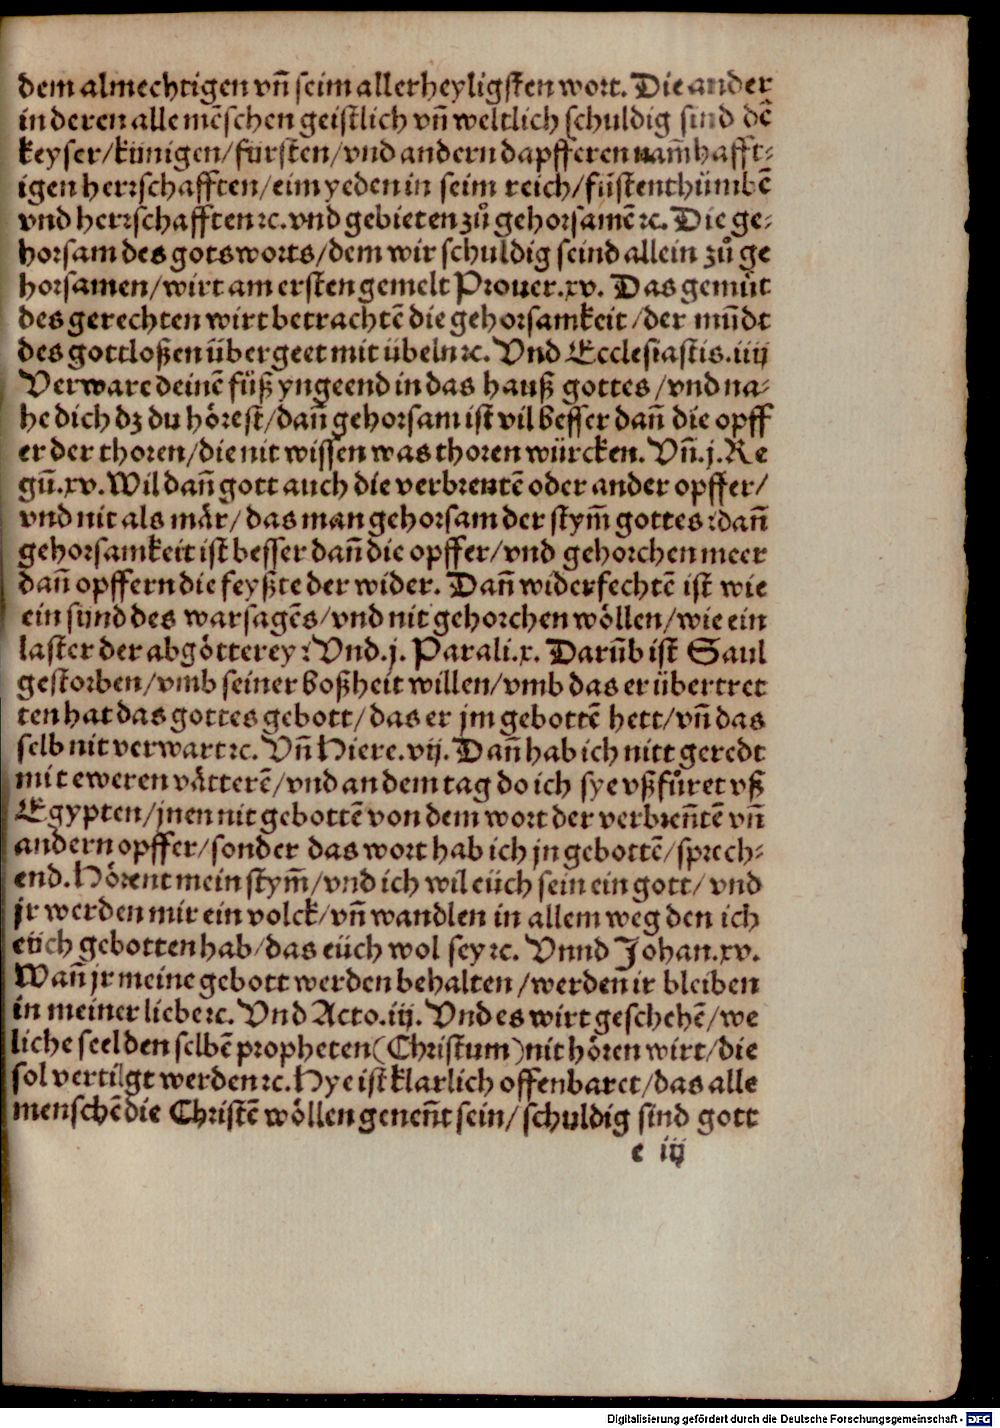 dem almechtigen vñ seim allerheyligsten wort. Die ander
in deren alle mẽschen geistlich vñ weltlich schuldig sind dẽ
keyser/künigen/fürsten/vnd andern dapfferen nam̃hafft⸗
igen herrschafften/eim yeden in seim reich/füstenthümbẽ
vnd herrschafften ⁊c. vnd gebieten zů gehorsamẽ ⁊c. Die ge⸗
horsam des gotsworts/dem wir schuldig seind allein zů ge
horsamen/wirt am ersten gemelt Prouer.xv. Das gemüt
des gerechten wirt betrachtẽ die gehorsamkeit/der mũdt
des gottloßen übergeet mit übeln ⁊c. Vnd Ecclesiastis.iiij
Verware deinẽ füß yngeend in das hauß gottes/vnd na⸗
he dich dz du hörest/dañ gehorsam ist vil besser dañ die opff
er der thoren/die nit wissen was thoren würcken. Vñ.j.Re
gũ.xv. Wil dañ gott auch die verbrentẽ oder ander opffer/
vnd nit als mär/das man gehorsam der stym̃ gottes? dañ
gehorsamkeit ist besser dañ die opffer/vnd gehorchen meer
dañ opffern die feyßte der wider. Dañ widerfechtẽ ist wie
ein sünd des warsagẽs/vnd nit gehorchen wöllen/wie ein
laster der abgötterey? Vnd.j. Parali.x. Darũb ist Saul
gestorben/vmb seiner boßheit willen/vmb das er übertret
ten hat das gottes gebott/das er jm gebottẽ hett/vñ das
selb nit verwart ⁊c. Vñ Hiere.vij. Dañ hab ich nitt geredt
mit eweren vätterẽ/vnd an dem tag do ich sye vßfůret vß
Egypten/jnen nit gebottẽ von dem wort der verbreñtẽ vñ
andern opffer/sonder das wort hab ich jn gebottẽ/sprech⸗
end. Hörent mein stym̃/vnd ich wil eüch sein ein gott/vnd
jr werden mir ein volck/vñ wandlen in allem weg den ich
eüch gebotten hab/das eüch wol sey ⁊c. Vnnd Johan.xv.
Wañ jr meine gebott werden behalten/werden ir bleiben
in meiner liebe ⁊c. Vnd Acto.iij. Vnd es wirt geschehẽ/we
liche seel den selbẽ propheten(Christum)nit hören wirt/die
sol vertilgt werden ⁊c. Hye ist klarlich offenbaret/das alle
menschẽ die Christẽ wöllen geneñt sein/schuldig sind gott
e iij
Digitalisierung gefördert durch die Deutsche Forschungsgemeinschaft - DFG